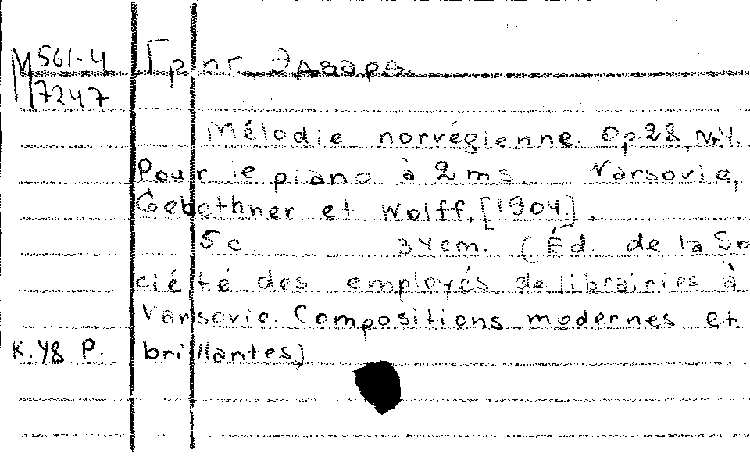 М 561-4 Григ Эдвард
7247
Mélodie norvégienne. Op 28 №1.
Pour le piano à 2 ms. Varsovie,
Gebethner et Wolff, [1904].
5 c 34 cm. (Éd. de la So
ciété des employés de librairies à
Varsovie. Compositions modernes et
К. 48 Р. brillantes)